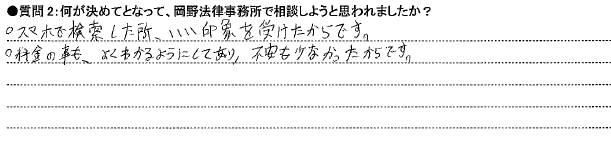 ●質問2:何が決めてとなって、岡野法律事務所で相談しようと思われましたか?
○スマホで検索した所、いい印象を受けたからです。
○料金の事も、よくわかるようにしてあり、不安も少なかったからです。